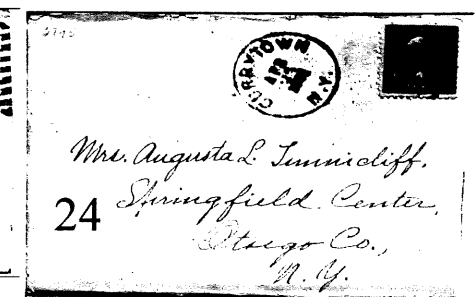 CURRYTOWN
N.Y.
APR
Mrs. Augusta L. Tunnicliff.
24
Springfield Center,
Otsego Co.,
N. Y.